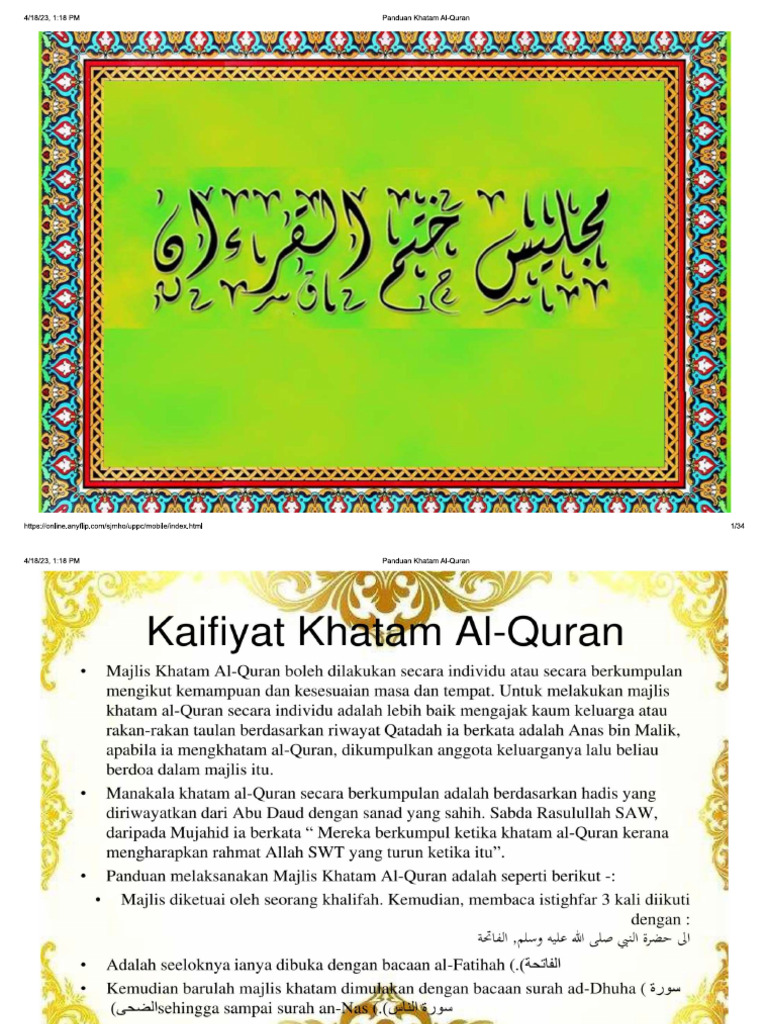 4/18/23, 1:18 PM
Panduan Khatam Al-Quran
مجليس ختم القرءان
https://online.anyflip.com/sjmho/uppc/mobile/index.html
1/34
4/18/23, 1:18 PM
Panduan Khatam Al-Quran
Kaifiyat Khatam Al-Quran
• Majlis Khatam Al-Quran boleh dilakukan secara individu atau secara berkumpulan
mengikut kemampuan dan kesesuaian masa dan tempat. Untuk melakukan majlis
khatam al-Quran secara individu adalah lebih baik mengajak kaum keluarga atau
rakan-rakan taulan berdasarkan riwayat Qatadah ia berkata adalah Anas bin Malik,
apabila ia mengkhatam al-Quran, dikumpulkan anggota keluarganya lalu beliau
berdoa dalam majlis itu.
• Manakala khatam al-Quran secara berkumpulan adalah berdasarkan hadis yang
diriwayatkan dari Abu Daud dengan sanad yang sahih. Sabda Rasulullah SAW,
daripada Mujahid ia berkata “ Mereka berkumpul ketika khatam al-Quran kerana
mengharapkan rahmat Allah SWT yang turun ketika itu”.
• Panduan melaksanakan Majlis Khatam Al-Quran adalah seperti berikut -:
• Majlis diketuai oleh seorang khalifah. Kemudian, membaca istighfar 3 kali diikuti
dengan :
الى حضرة النبي صلى الله عليه وسلم, الفاتحة
• Adalah seeloknya ianya dibuka dengan bacaan al-Fatihah (.(الفاتحة
• Kemudian barulah majlis khatam dimulakan dengan bacaan surah ad-Dhuha ( سورة
الضحى)sehingga sampai surah an-Nas (.(سورة الناس